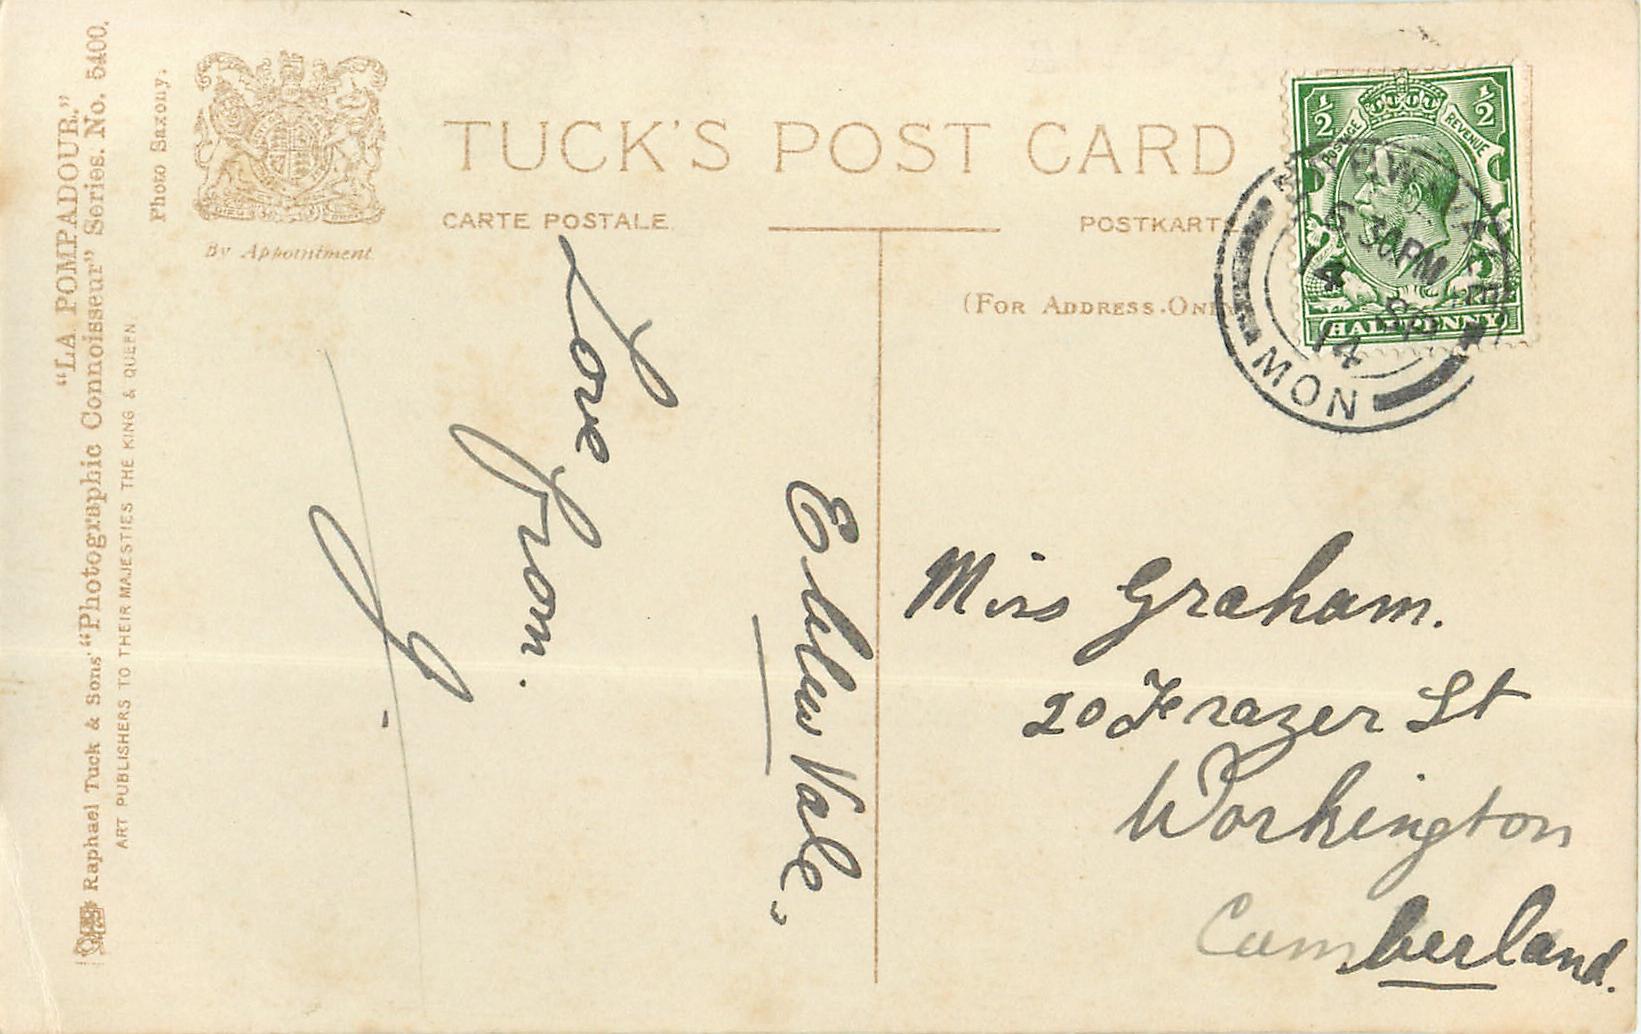 "LA POMPADOUR."
Raphael Tuck & Sons' "Photographic Connoisseur" Series. No. 5400.
ART PUBLISHERS TO THEIR MAJESTIES THE KING & QUEEN.
Photo Saxony.
By Appointment
TUCK'S POST CARD
CARTE POSTALE
POSTKARTE
(FOR ADDRESS ONLY
½ ½
POSTAGE REVENUE
HALFPENNY
30 PM
14 SP
14
MON
Ebbw Vale,
Love
from.
G.
Miss Graham.
20 Frazer St
Workington
Cumberland.